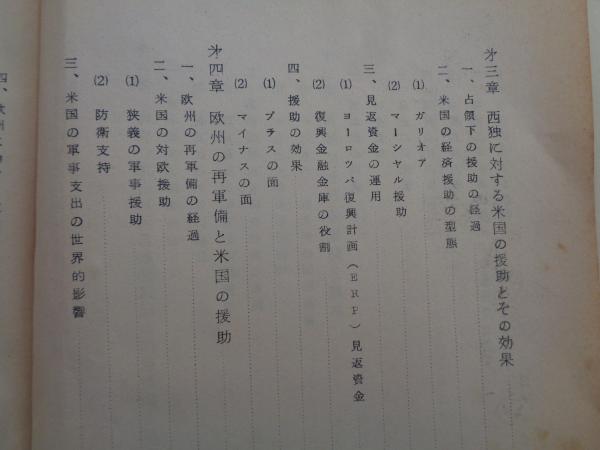 才三章 西独に対する米国の援助とその効果
一、占領下の援助の経過
二、米国の経済援助の型態
(1) ガリオア
(2) マーシャル援助
三、見返資金の運用
(1) ヨーロツパ復興計画(ERP)見返資金
(2) 復興金融金庫の役割
四、援助の効果
(1) プラスの面
(2) マイナスの面
才四章 欧州の再軍備と米国の援助
一、欧州の再軍備の経過
二、米国の対欧援助
(1) 狭義の軍事援助
(2) 防衛支持
三、米国の軍事支出の世界的影響